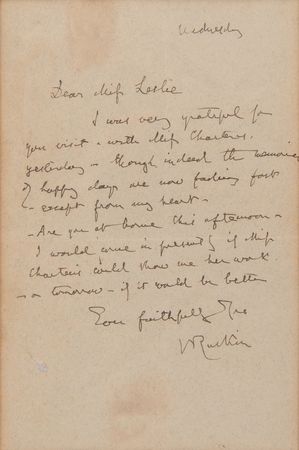 Wednesday
Dear Miss Leslie
I was very grateful for
your visit - with Miss Charteris,
yesterday - though indeed the memories
of happy days are now fading fast
- except from my heart -
- Are you at home this afternoon -
I would come in presently if Miss
Charteris could show me her work
- or tomorrow - if it would be better
Ever faithfully
Ruskin